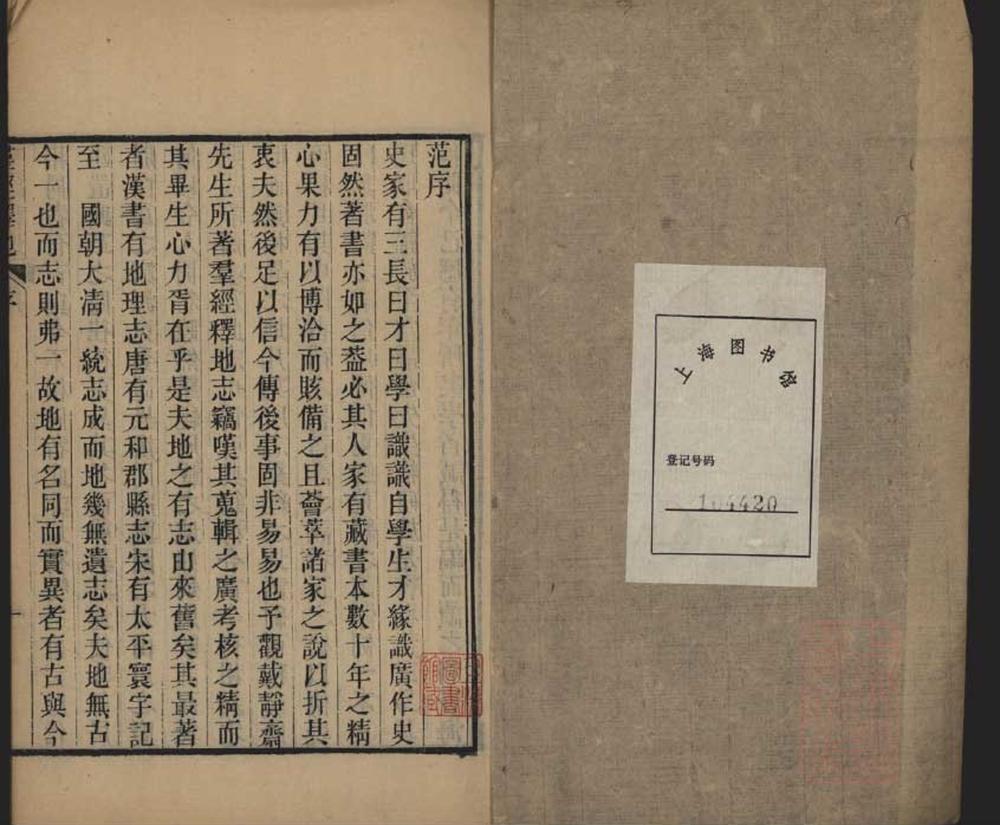 上海图书馆
登记号码
范序
史家有三長曰才曰學曰識識自學生才緣識廣作史
固然著書亦如之葢必其人家有藏書本數十年之精
心果力有以博洽而賅備之且薈萃諸家之說以折其
衷夫然後足以信今傳後事固非易易也予觀戴靜齋
先生所著羣經釋地志竊嘆其蒐輯之廣考核之精而
其畢生心力胥在乎是夫地之有志由來舊矣其最著
者漢書有地理志唐有元和郡縣志宋有太平寰宇記
至 國朝大淸一統志成而地幾無遺志矣夫地無古
今一也而志則弗一故地有名同而實異者有古與今